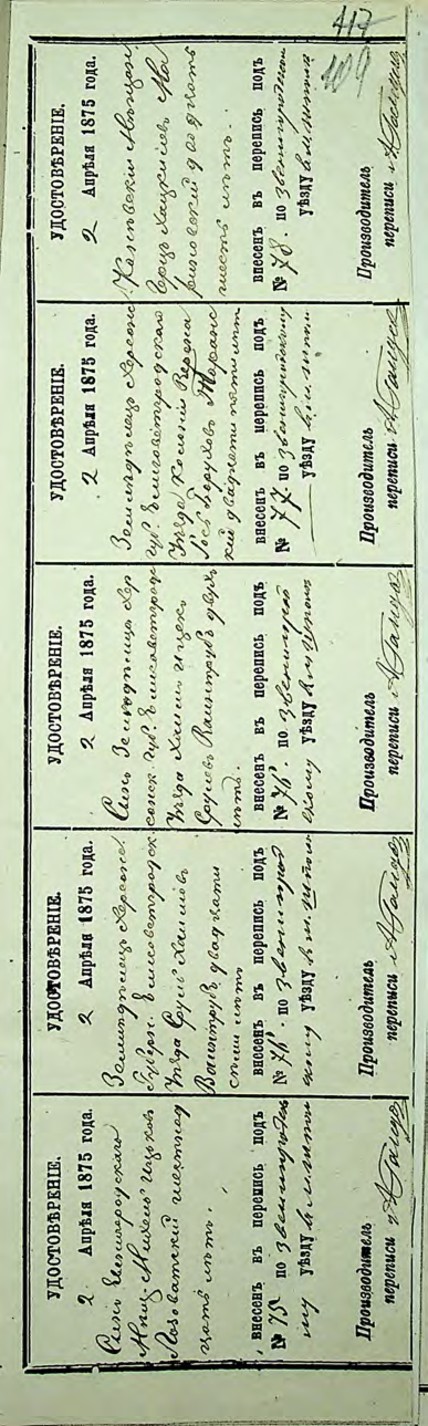 417
409
УДОСТОВѢРЕНІЕ.
2 Апрѣля 1875 года.
Сынъ Звенигородскаго
Мѣщ. Михель Ицковъ
Лазоватскій шестнад
цать лѣтъ.
внесенъ въ перепись подъ
№ 75 по звенигородско
му уѣзду
Производитель
переписи
УДОСТОВѢРЕНІЕ.
2 Апрѣля 1875 года.
Земледѣлецъ Херсонс.
Губерн. Елисоветградск.
Уѣзда Сруль Хаимовъ
Ваинтрубъ двадцати
семи лѣтъ
внесенъ въ перепись подъ
№ 76. по звенигород
скому уѣзду
Производитель
переписи
УДОСТОВѢРЕНІЕ.
2 Апрѣля 1875 года.
Сынъ Земледѣльца Хер
сонск. губ. Елисоветград.
Уѣзда Хаимъ Ицек
Срулевъ Ваинтрубъ двухъ
лѣтъ.
внесенъ въ перепись подъ
№ 76. по звенигород
скому уѣзду
Производитель
переписи
УДОСТОВѢРЕНІЕ.
2 Апрѣля 1875 года.
Земледѣлецъ Херсонс.
губ. Елисоветградскаго
Уѣзда колоніи
Борухов
двадцати пяти лѣт
внесенъ въ перепись подъ
№ 77. по звенигородскому
уѣзду
Производитель
переписи
УДОСТОВѢРЕНІЕ.
2 Апрѣля 1875 года.
Каневскій Мѣщан.
Хацкелевъ
двадцать
шесть лѣтъ.
внесенъ въ перепись подъ
№ 78. по звенигородском
уѣзду
Производитель
переписи